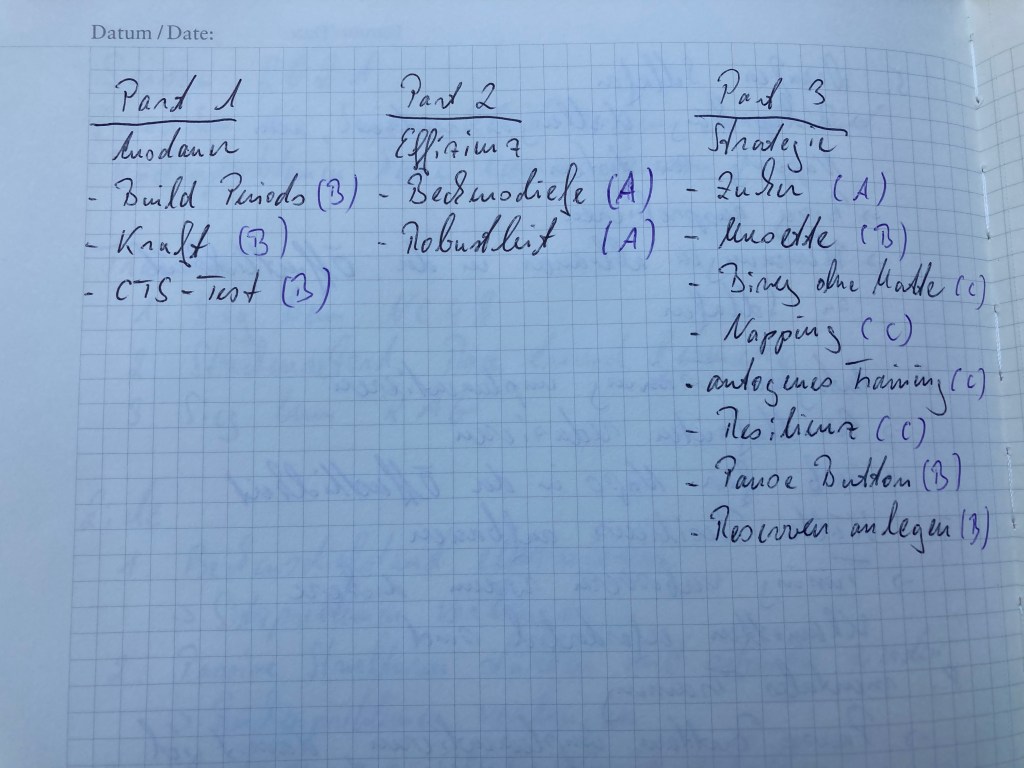 Datum / Date:
Part 1
Ausdauer
- Build Periods (B)
- Kraft (B)
- CTS-Test (B)
Part 2
Effizienz
- Beckenschiefe (A)
- Robustheit (A)
Part 3
Strategie
- Zucker (A)
- (B)
- Biwey ohne Matte (C)
- Napping (C)
- autogenes Training (C)
- Resilienz (C)
- Pause Button (B)
- Reserven anlegen (B)